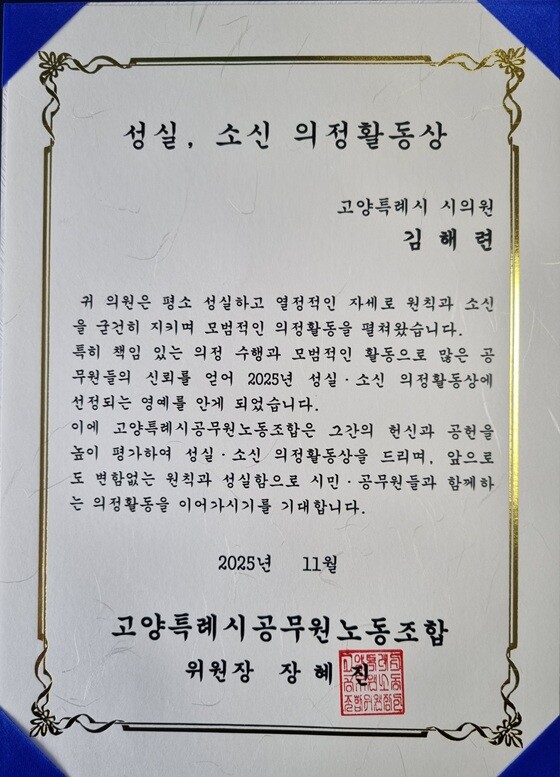 성실, 소신 의정활동상
고양특례시 시의원
김 해 련
귀 의원은 평소 성실하고 열정적인 자세로 원칙과 소신
을 굳건히 지키며 모범적인 의정활동을 펼쳐왔습니다.
특히 책임 있는 의정 수행과 모범적인 활동으로 많은 공
무원들의 신뢰를 얻어 2025년 성실·소신 의정활동상에
선정되는 영예를 안게 되었습니다.
이에 고양특례시공무원노동조합은 그간의 헌신과 공헌을
높이 평가하여 성실·소신 의정활동상을 드리며, 앞으로
도 변함없는 원칙과 성실함으로 시민·공무원들과 함께하
는 의정활동을 이어가시기를 기대합니다.
2025년 11월
고양특례시공무원노동조합
위원장 장 혜 진